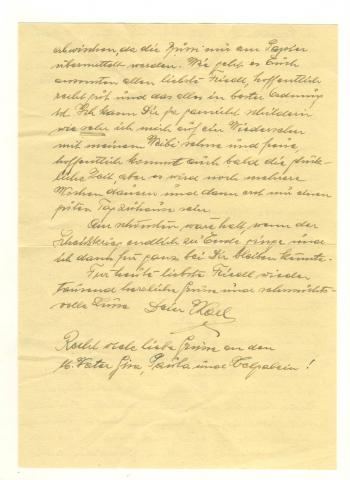 da die Grüsse nur am Papier
übermittelt werden. Wie geht es Euch
ansonsten allen liebste Friedl, hoffentlich
recht gut und das alles in bester Ordnung
ist. Ich kann Dir ja garnicht schildern
wie sehr ich mich auf ein Wiedersehen
mit meinem Weibi sehne und freue,
hoffentlich kommt auch bald die glück-
liche Zeit aber es wird noch mehrere
Wochen dauern und dann erst mit einen
guten Tag zuhause sein.
Am schönsten wäre halt, wenn der
Scheisskrieg endlich zu Ende ginge und
ich dann für ganz bei Dir bleiben könnte.
Für heute liebste Friedl wieder
tausend herzliche Grüsse und sehnsuchts-
volle Küsse Dein Karl
Recht viele liebe Grüsse an den
Vater, Paula und